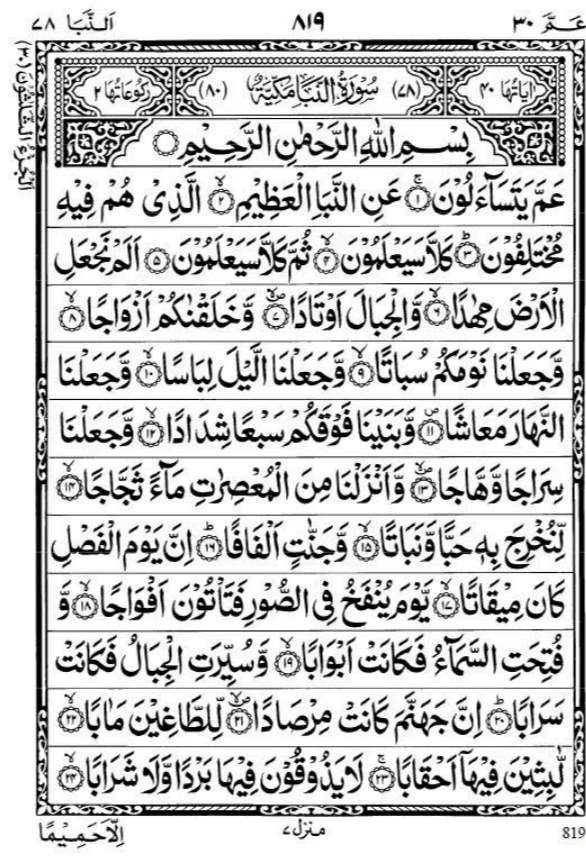 عَمَّ ۳۰
۸۱۹
اَلنَّبَا ۷۸
اَلْجُزْءُ الثَّلَاثُوْنَ (۳۰)
اٰيَاتُهَا ۴۰
(۷۸) سُوْرَةُ النَّبَاِ مَكِّيَّةٌ (۸۰)
رُكُوْعَاتُهَا ۲
بِسْمِ اللهِ الرَّحْمٰنِ الرَّحِيْمِ
عَمَّ يَتَسَآءَلُوْنَ ۚ﴿۱﴾ عَنِ النَّبَاِ الْعَظِيْمِ ۙ﴿۲﴾ الَّذِىْ هُمْ فِيْهِ
مُخْتَلِفُوْنَ ؕ﴿۳﴾ كَلَّا سَيَعْلَمُوْنَ ۙ﴿۴﴾ ثُمَّ كَلَّا سَيَعْلَمُوْنَ ﴿۵﴾ اَلَمْ نَجْعَلِ
الْاَرْضَ مِهٰدًا ۙ﴿۶﴾ وَّالْجِبَالَ اَوْتَادًا ۪ۙ﴿۷﴾ وَّخَلَقْنٰكُمْ اَزْوَاجًا ۙ﴿۸﴾
وَّجَعَلْنَا نَوْمَكُمْ سُبَاتًا ۙ﴿۹﴾ وَّجَعَلْنَا الَّيْلَ لِبَاسًا ۙ﴿۱۰﴾ وَّجَعَلْنَا
النَّهَارَ مَعَاشًا ۪﴿۱۱﴾ وَّبَنَيْنَا فَوْقَكُمْ سَبْعًا شِدَادًا ۙ﴿۱۲﴾ وَّجَعَلْنَا
سِرَاجًا وَّهَّاجًا ۪ۙ﴿۱۳﴾ وَّاَنْزَلْنَا مِنَ الْمُعْصِرٰتِ مَآءً ثَجَّاجًا ۙ﴿۱۴﴾
لِّنُخْرِجَ بِهٖ حَبًّا وَّنَبَاتًا ۙ﴿۱۵﴾ وَّجَنّٰتٍ اَلْفَافًا ؕ﴿۱۶﴾ اِنَّ يَوْمَ الْفَصْلِ
كَانَ مِيْقَاتًا ۙ﴿۱۷﴾ يَّوْمَ يُنْفَخُ فِى الصُّوْرِ فَتَاْتُوْنَ اَفْوَاجًا ۙ﴿۱۸﴾ وَّ
فُتِحَتِ السَّمَآءُ فَكَانَتْ اَبْوَابًا ۙ﴿۱۹﴾ وَّسُيِّرَتِ الْجِبَالُ فَكَانَتْ
سَرَابًا ؕ﴿۲۰﴾ اِنَّ جَهَنَّمَ كَانَتْ مِرْصَادًا ۪ۙ﴿۲۱﴾ لِّلطَّاغِيْنَ مَاٰبًا ۙ﴿۲۲﴾
لّٰبِثِيْنَ فِيْهَاۤ اَحْقَابًا ۚ﴿۲۳﴾ لَا يَذُوْقُوْنَ فِيْهَا بَرْدًا وَّلَا شَرَابًا ۙ﴿۲۴﴾
819
منزل ۷
اِلَّا حَمِيْمًا